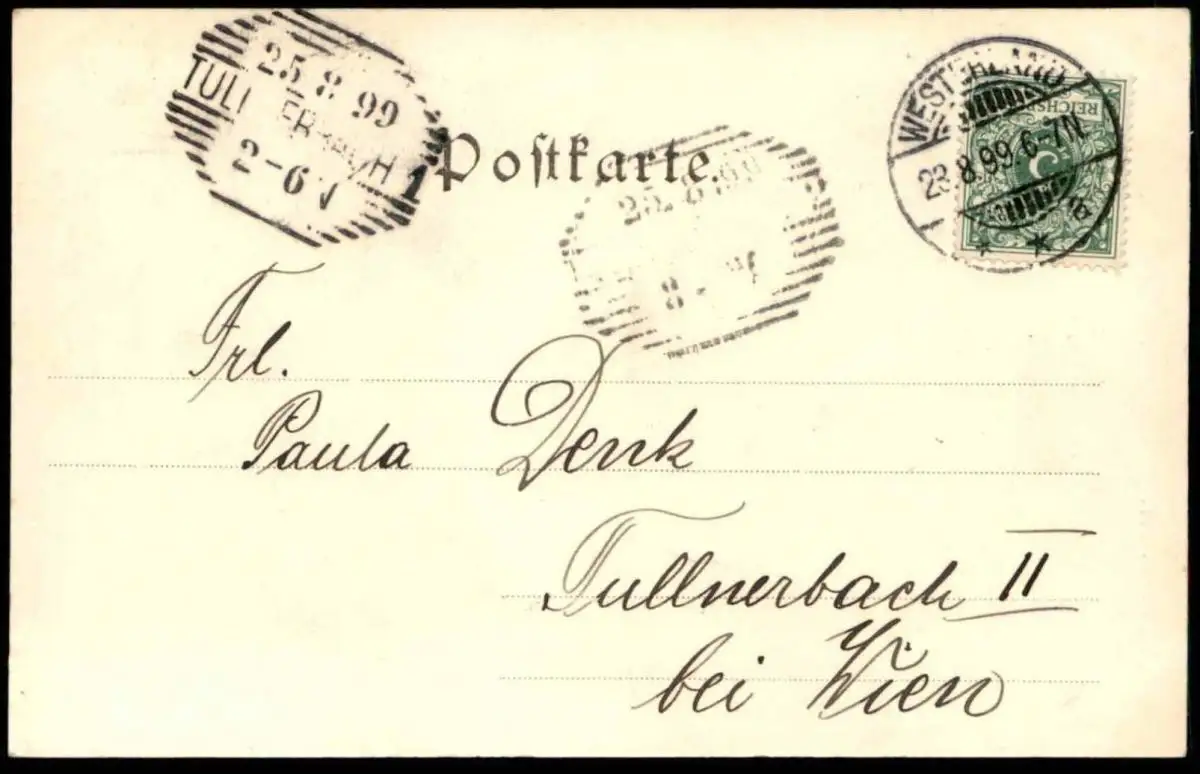 25 8 99
TULLNERBACH
2-6N
1
Postkarte.
25.8.99
8 -
WESTERLAND
23.8.99.6-7N
a
* *
REICHSPOST
5
Frl.
Paula Denk
Tullnerbach II
bei Wien